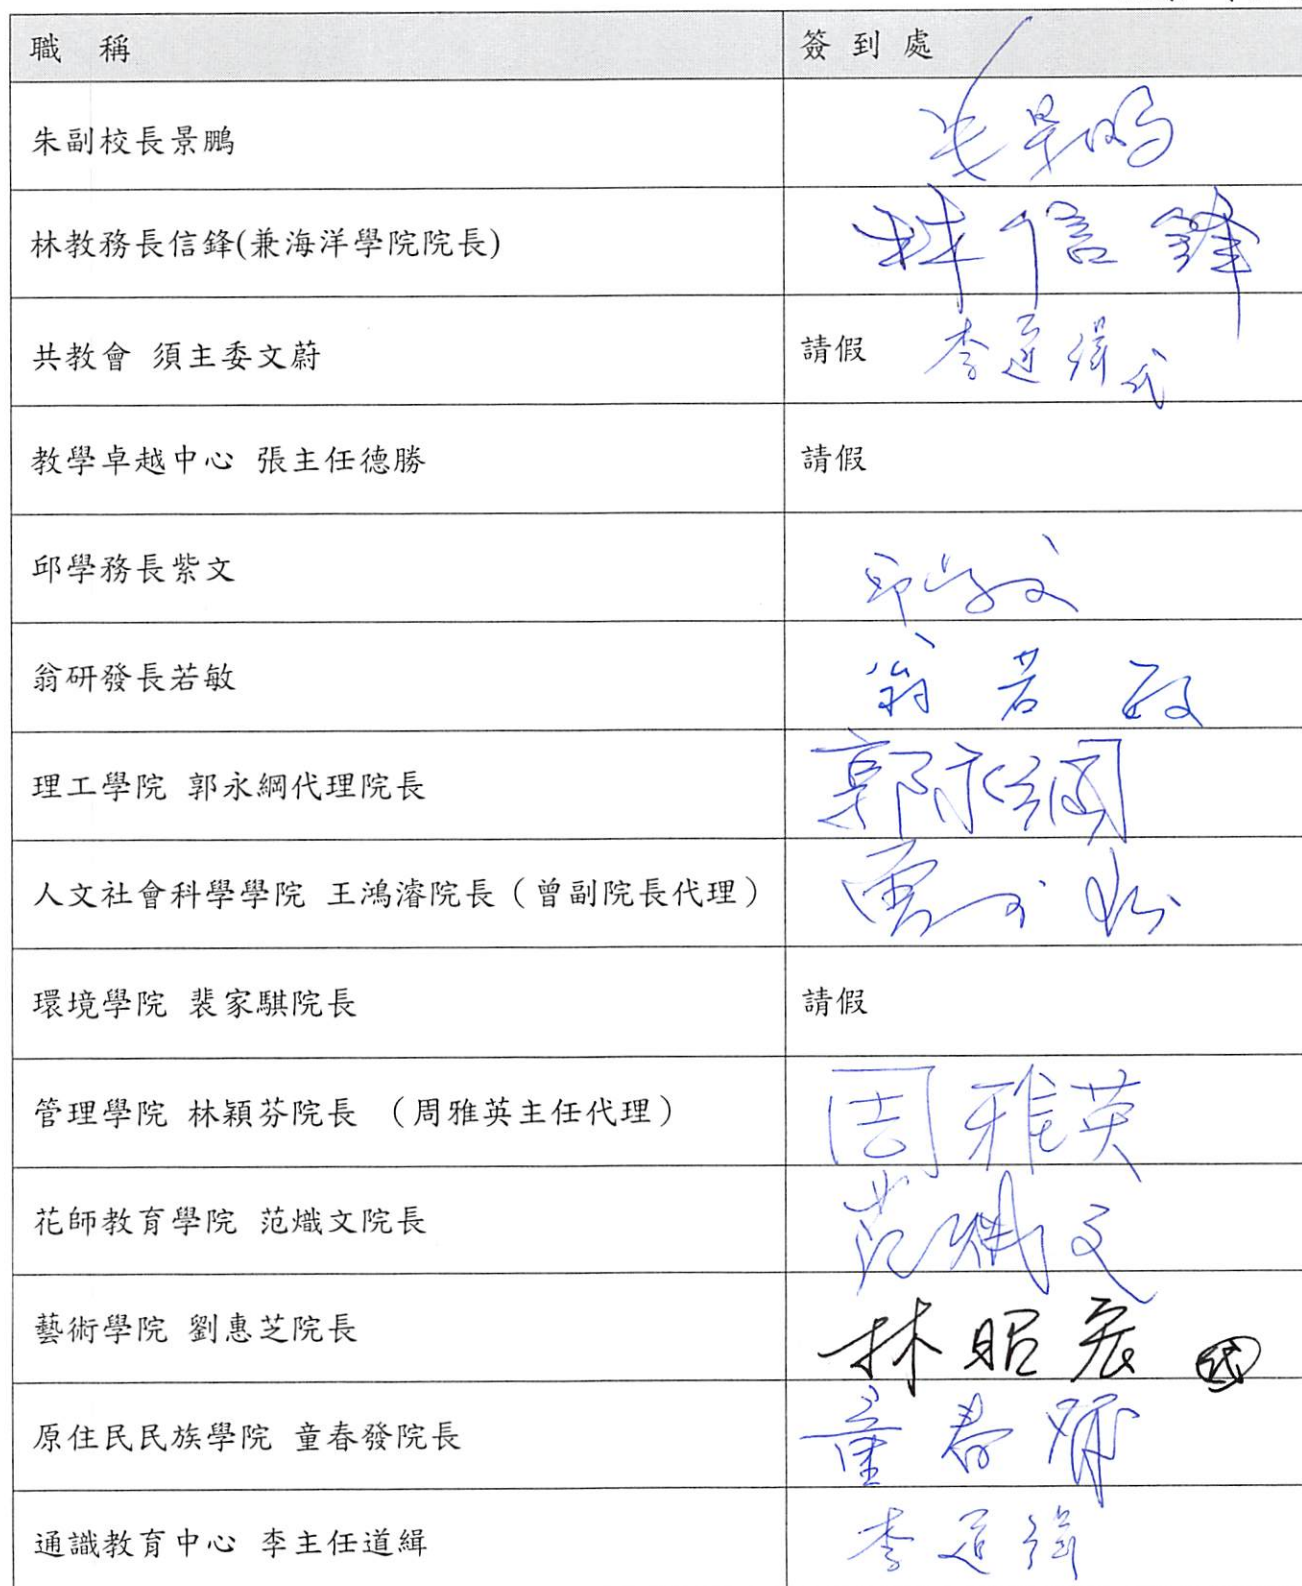 職 稱
簽到處
朱副校長景鵬
朱景鵬
林教務長信鋒(兼海洋學院院長)
林信鋒
共教會 須主委文蔚
請假 李道緝代
教學卓越中心 張主任德勝
請假
邱學務長紫文
邱紫文
翁研發長若敏
翁若敏
理工學院 郭永綱代理院長
郭永綱
人文社會科學學院 王鴻濬院長（曾副院長代理）
環境學院 裴家騏院長
請假
管理學院 林穎芬院長 （周雅英主任代理）
周雅英
花師教育學院 范熾文院長
范熾文
藝術學院 劉惠芝院長
林昭宏 代
原住民民族學院 童春發院長
童春發
通識教育中心 李主任道緝
李道緝